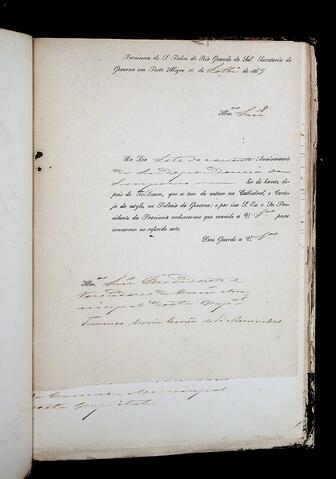 Provincia de S. Pedro do Rio Grande do Sul. Secretaria do
Governo em Porto Alegre de Setbr.o de 1869
Illm.os Snr.s
No Dia Sete do corrente Anniversario
da Independencia do
Imperio ha de haver, de-
pois do Te-Deum, que se tem de cantar na Cathedral, o Corte-
jo do estylo, no Palacio do Governo; e por isso S. Ex. o Sr. Pre-
sidente da Provincia ordenou-me que convide a V. S.as para
concorrer ao referido acto.
Deos Guarde a V. S.as
Illm.os Snr.s Presidente e
Vereadores da Camara Mu-
nicipal desta Capital
da Camara Municipal
desta Capital